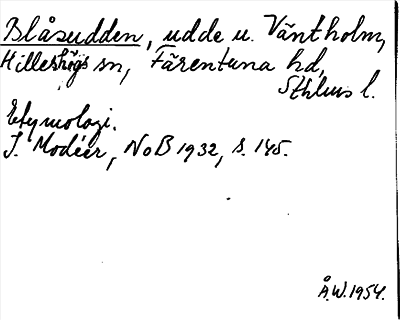 Blåsudden, udde u. Väntholm,
Hilleshögs sn, Färentuna hd,
Sthlms l.
Etymologi.
I. Modéer, NoB 1932, s. 145.
Å.W. 1954.